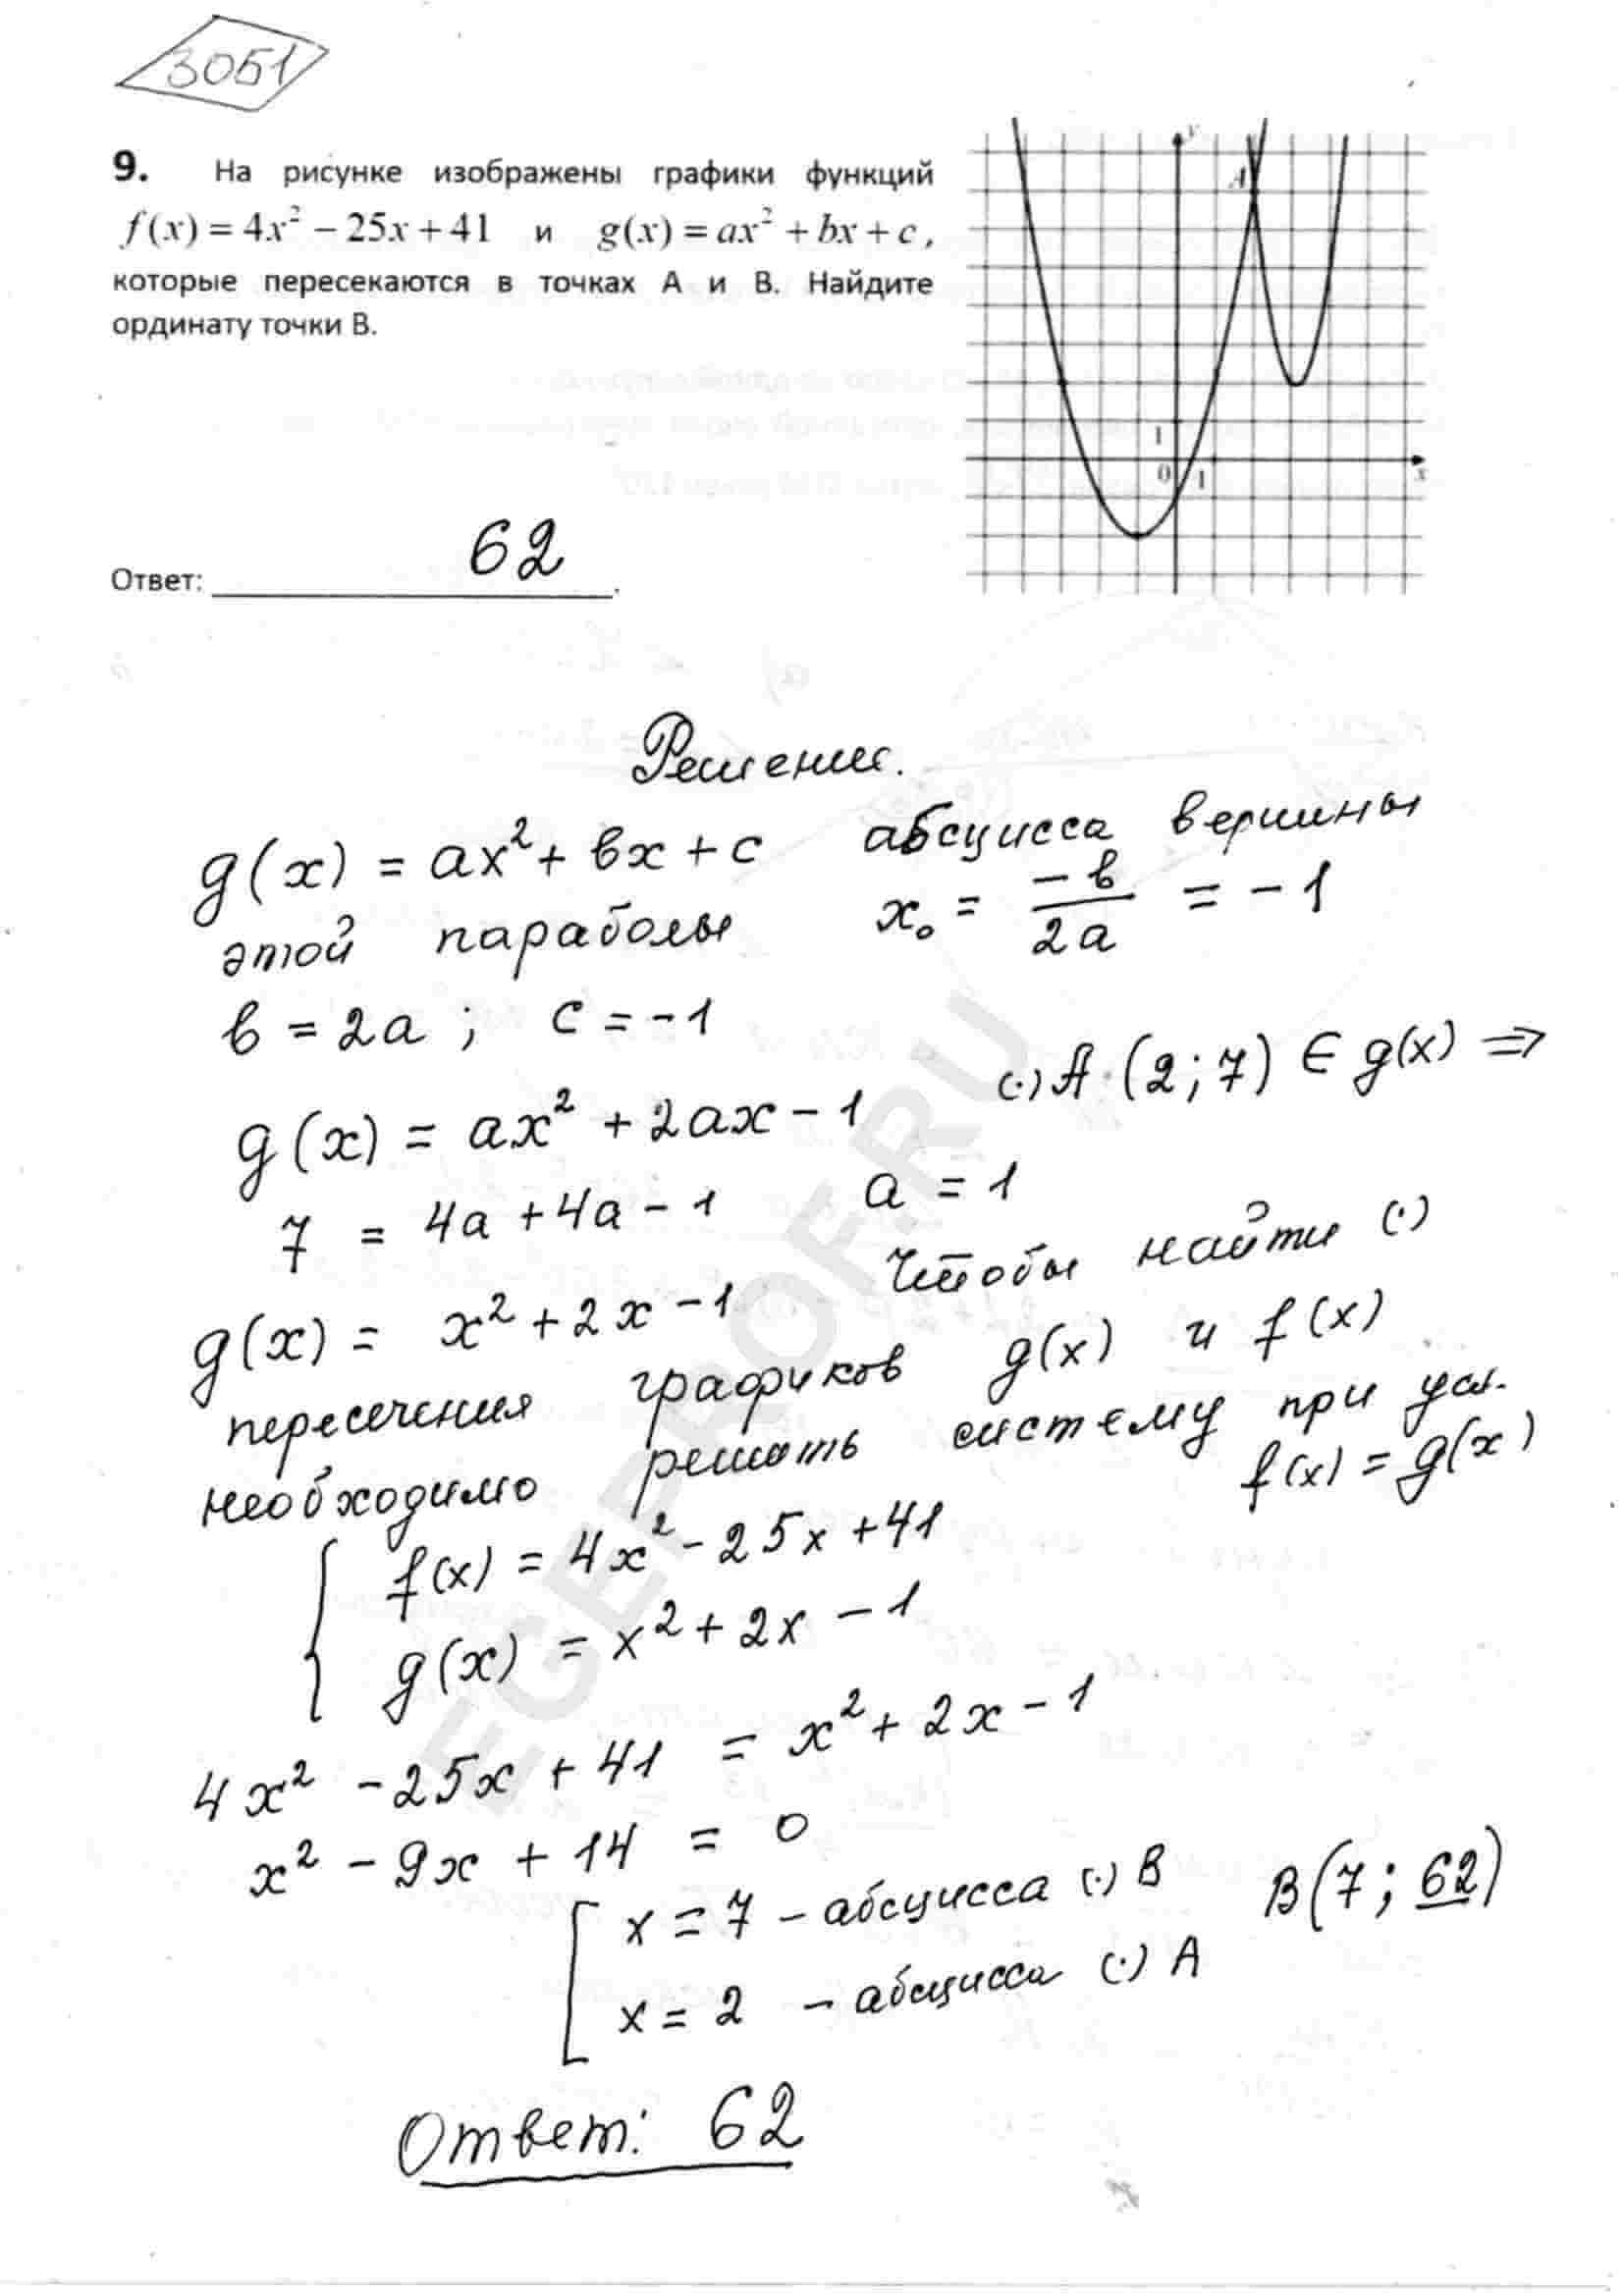 3051
9. На рисунке изображены графики функций
f(x) = 4x² − 25x + 41 и g(x) = ax² + bx + c,
которые пересекаются в точках А и В. Найдите
ординату точки В.
y
A
1
0 1
x
Ответ: 62.
Решение.
g(x) = ax² + bx + c абсцисса вершины
этой параболы x₀ = −b/2a = −1
b = 2a ; c = −1
g(x) = ax² + 2ax − 1 (·) A (2; 7) ∈ g(x) ⇒
7 = 4a + 4a − 1 a = 1
g(x) = x² + 2x − 1 Чтобы найти (·)
пересечения графиков g(x) и f(x)
необходимо решать систему при усл.
f(x) = g(x)
{ f(x) = 4x² − 25x + 41
g(x) = x² + 2x − 1
4x² − 25x + 41 = x² + 2x − 1
x² − 9x + 14 = 0
[ x = 7 − абсцисса (·) B B(7; 62)
x = 2 − абсцисса (·) A
Ответ: 62
EGEPROF.RU